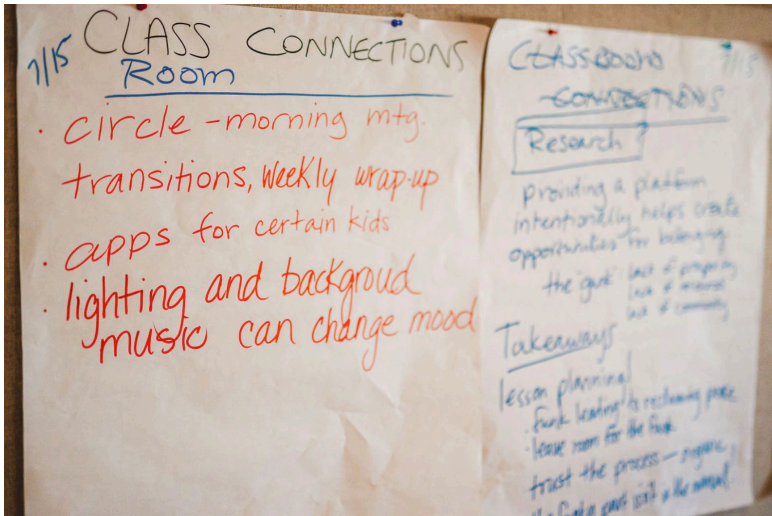 7/15 CLASS CONNECTIONS
Room
· circle - morning mtg.
transitions, weekly wrap-up
· apps for certain kids
· lighting and backgroud
music can change mood
CLASSROOM 7/15
CONNECTIONS
Research
providing a platform
intentionally helps create
opportunities for belonging
the "gunk" lack of
lack of
lack of community
Takeaways
lesson planning!
· funk leading to reclaiming
· leave room for the funk
trust the process - organic
part isn't in the manual!